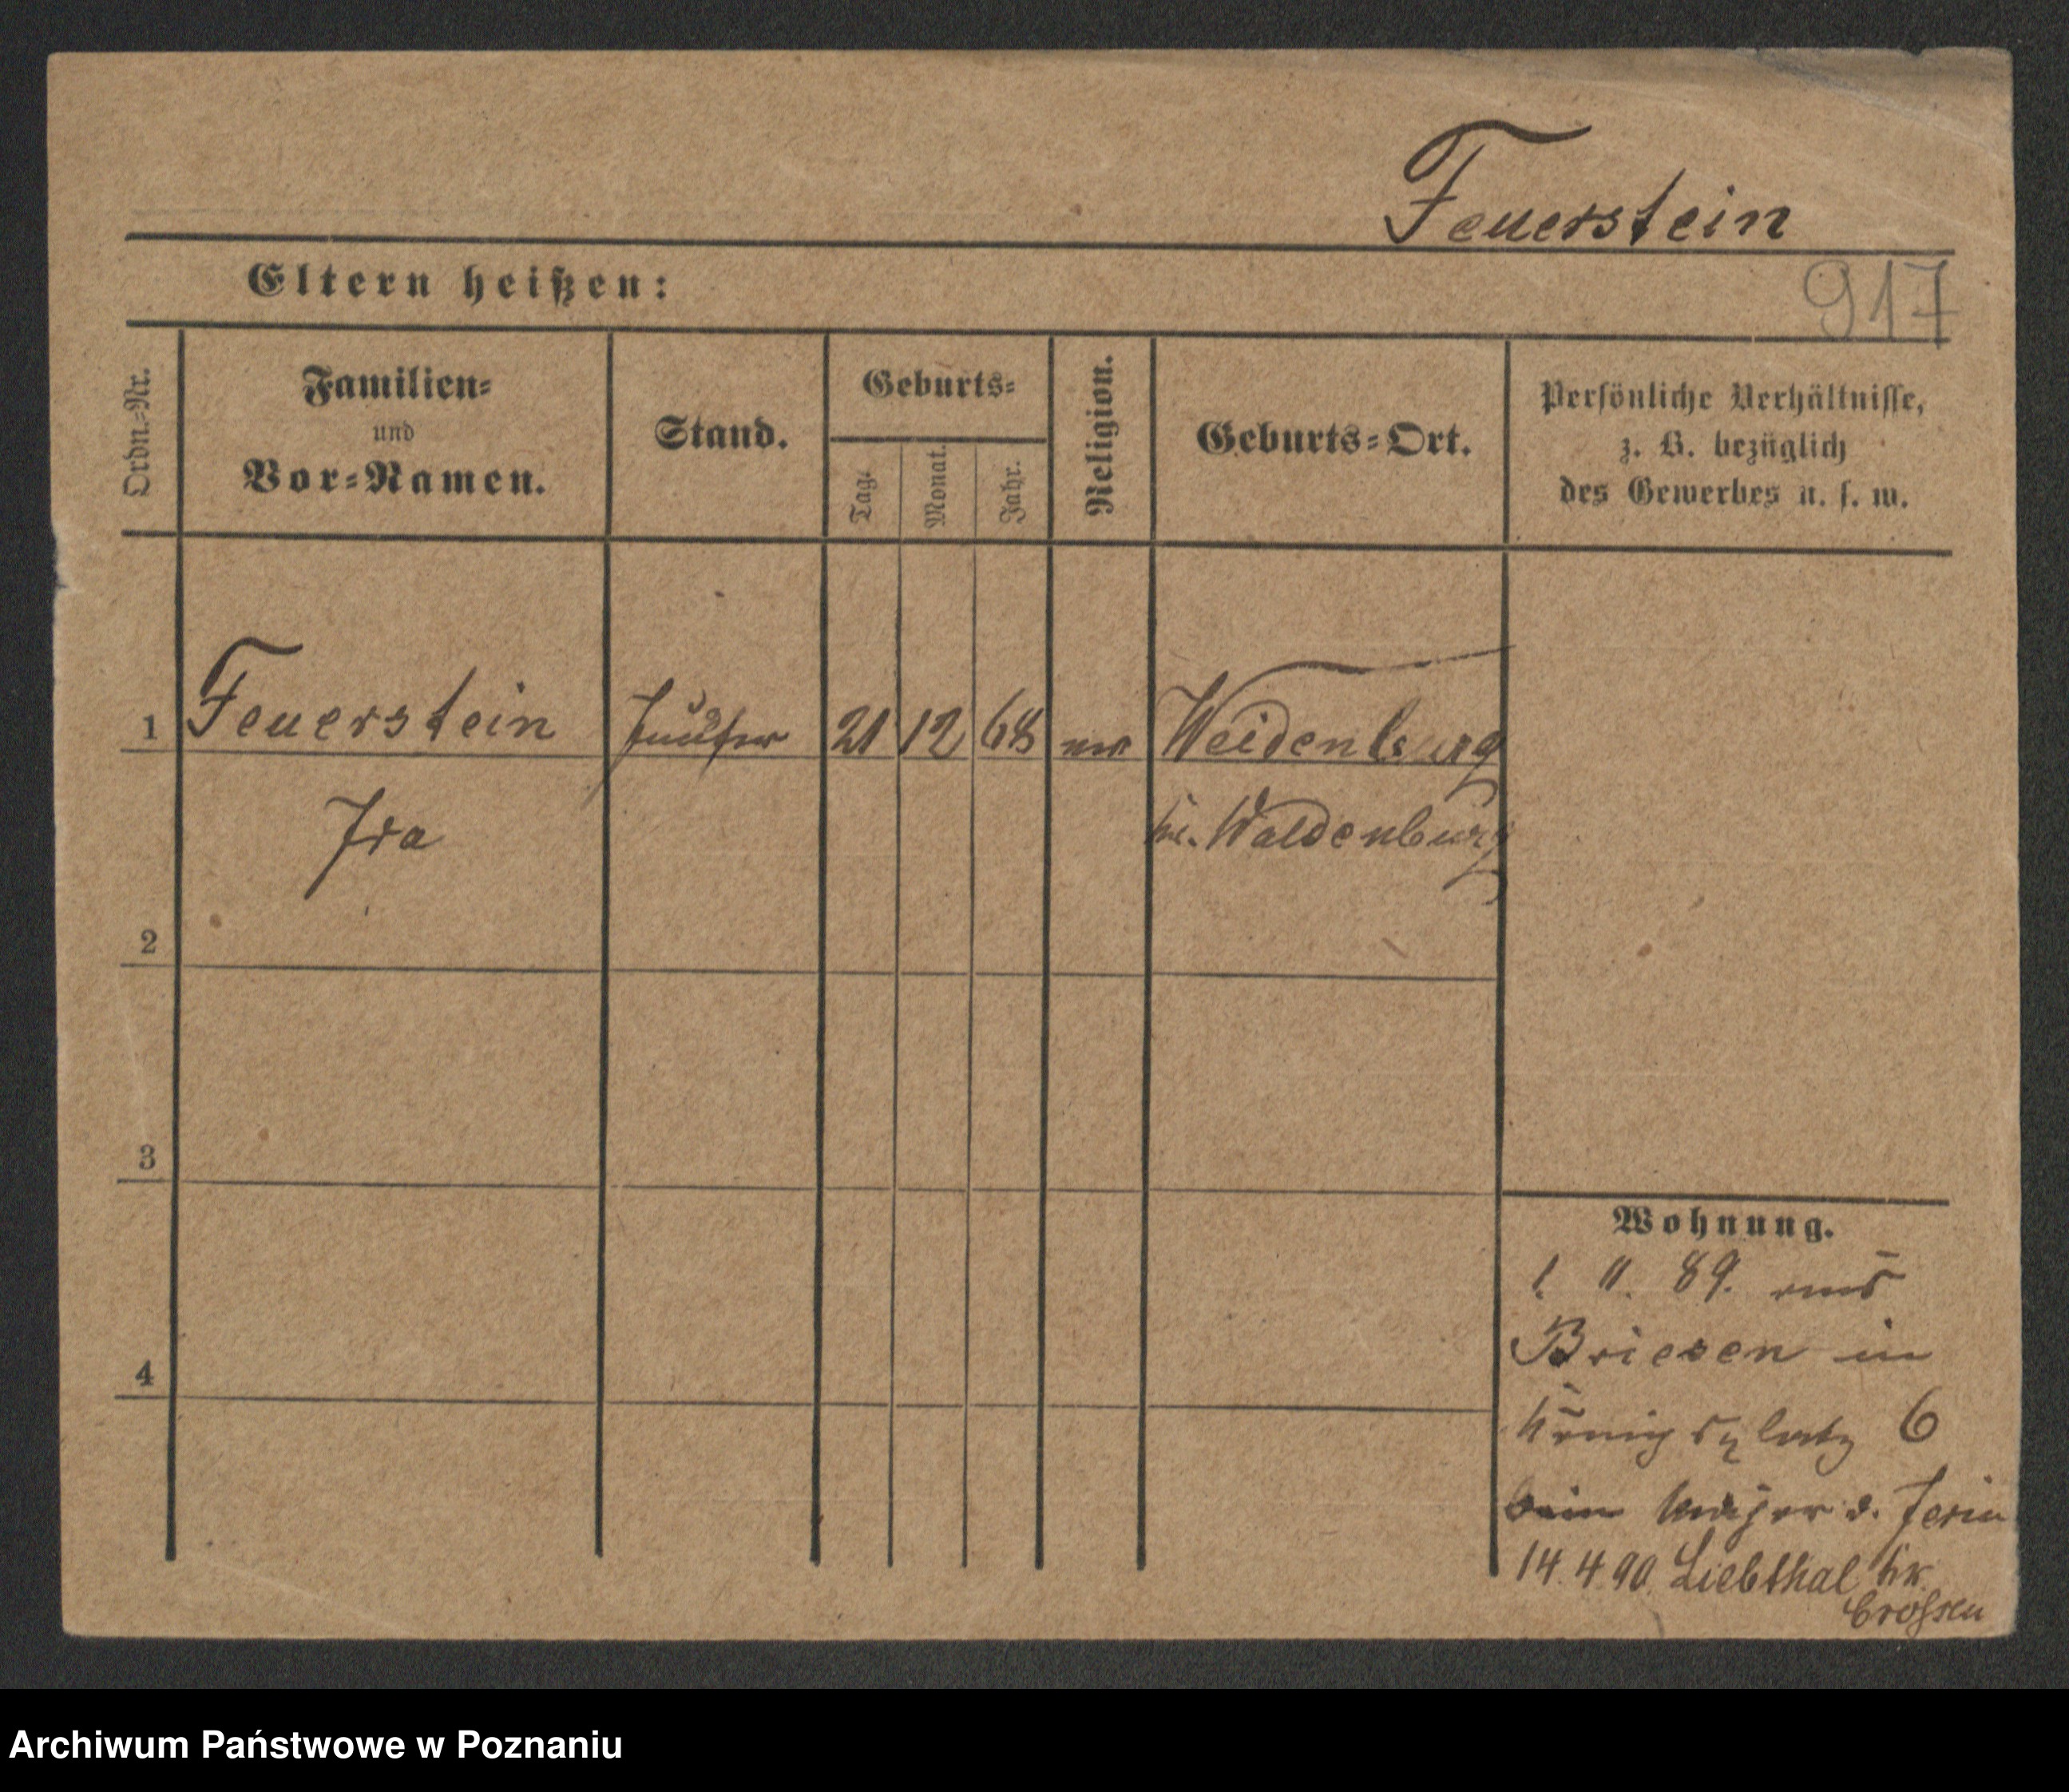 Feuerstein
Eltern heißen:
917
Ordn.=Nr.
Familien=
und
Vor=Namen.
Stand.
Geburts=
Tag.
Monat.
Jahr.
Religion.
Geburts=Ort.
Persönliche Verhältnisse,
z. B. bezüglich
des Gewerbes u. s. w.
1 Feuerstein 21 12 68 Weidenburg
Ida
Kr. Waldenburg
2
3
4
Wohnung.
1. 11. 89. aus
Briesen in
Königsplatz 6
beim Major v. Jerin
14. 4. 90. Liebthal Kr.
Crossen
Archiwum Państwowe w Poznaniu